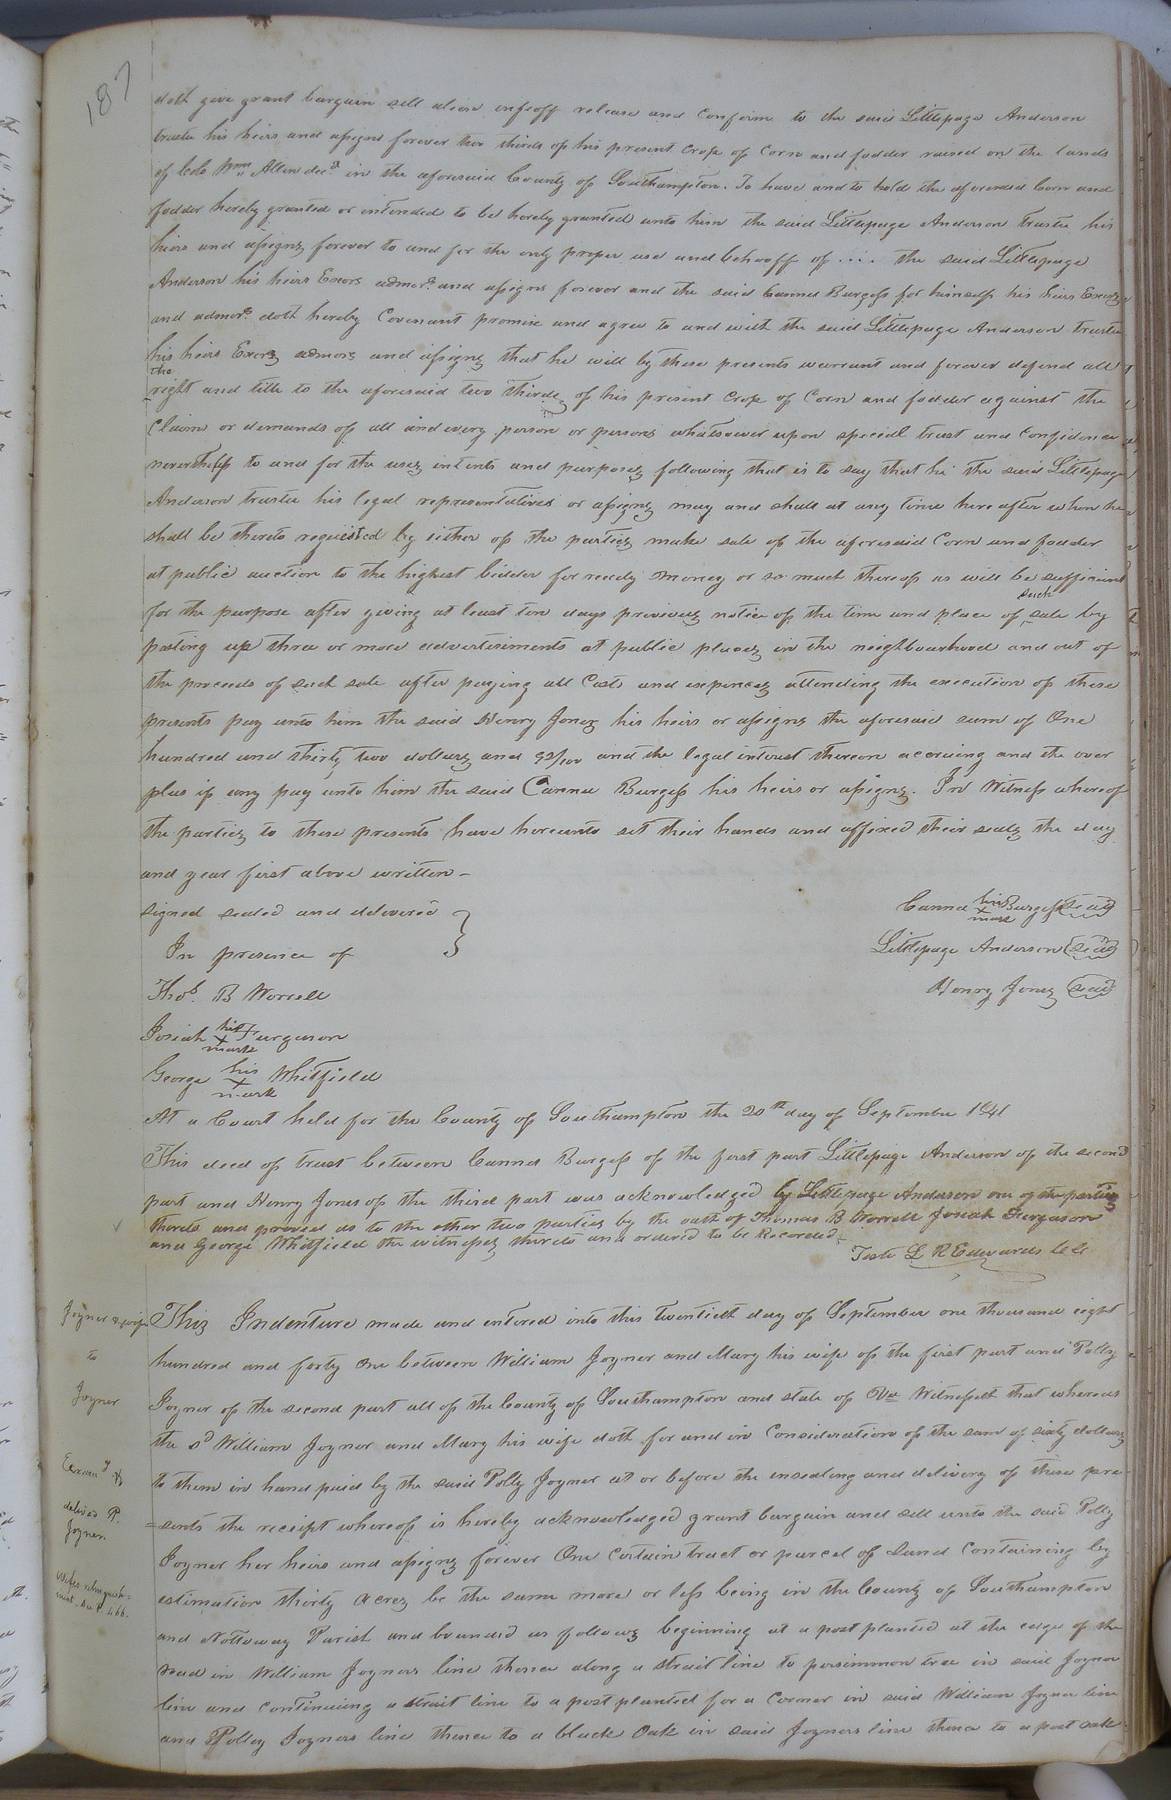 187
doth give grant bargain sell alien enfeoff release and confirm to the said Littlepage Anderson
trustee his heirs and assigns forever two thirds of his present Crop of Corn and fodder raised on the lands
of Colo Wm Allen decd in the aforesaid County of Southampton. To have and to hold the aforesaid Corn and
fodder hereby granted or intended to be hereby granted unto him the said Littlepage Anderson trustee his
heirs and assigns forever to and for the only proper use and behooff of .... the said Littlepage
Anderson his heirs Exors admors and assigns forever and the said Canna Burgess for himself his heirs Exors
and admors doth hereby Covenant promise and agree to and with the said Littlepage Anderson trustee
his heirs Exors admors and assigns that he will by these presents warrant and forever defend all
the
right and title to the aforesaid two thirds of his present Crop of Corn and fodder against the
Claim or demands of all and every person or persons whatsoever upon special trust and confidence
nevertheless to and for the uses intents and purposes following that is to say that he the said Littlepage
Anderson trustee his legal representatives or assigns may and shall at any time here after when he
shall be thereto requested by either of the parties make sale of the aforesaid Corn and fodder
at public auction to the highest bidder for ready money or so much thereof as will be sufficient
such
for the purpose after giving at least ten days previous notice of the time and place of sale by
posting up three or more advertisiments at public places in the neighbourhood and out of
the proceeds of such sale after paying all Costs and expences attending the execution of these
presents pay unto him the said Henry Jones his heirs or assigns the aforesaid sum of One
hundred and thirty two dollars and 92/100 and the legal interest thereon accruing and the over
plus if any pay unto him the said Canna Burgess his heirs or assigns. In Witness whereof
the parties to these presents have hereunto set their hands and affixed their seals the day
and year first above written -
signed sealed and delivered
In presence of
Canna his x mark Burgess seal
Littlepage Anderson seal
Henry Jones seal
Thos. B Worrell
Josiah his x mark Furguson
George his x mark Whitfield
At a Court held for the County of Southampton the 20th day of September 1841
This deed of trust between Canna Burgess of the first part Littlepage Anderson of the second
part and Henry Jones of the third part was acknowledged by Littlepage Anderson one of the parties
thereto and proved as to the other two parties by the oath of Thomas B Worrell Josiah Furguson
and George Whitfield the witnesses thereto and ordered to be Recorded
Teste L R Edwards CC
Joyner & wife
to
Joyner
Examd &
delived P.
Joyner
Wifes relinquish=
ment. See P. 466.
This Indenture made and entered into this twentieth day of September one thousand eight
hundred and forty one between William Joyner and Mary his wife of the first part and Polly
Joyner of the second part all of the County of Southampton and state of Va Witnesseth that whereas
the sd William Joyner and Mary his wife doth for and in Consideration of the sum of sixty dollars
to them in hand paid by the said Polly Joyner at or before the ensealing and delivery of these pre-
=sents the receipt whereof is hereby acknowledged grant bargain and sell unto the said Polly
Joyner her heirs and assigns forever One certain tract or parcel of Land Containing by
estimation thirty acres be the same more or less being in the County of Southampton
and Nottoway Parish and bounded as follows beginning at a post planted at the edge of the
road in William Joyners line thence along a strait line to persimmon tree in said Joyner
line and continuing a strait line to a post planted for a Corner in said William Joyner line
and Polley Joyners line thence to a black Oak in said Joyners line thence to a post oak